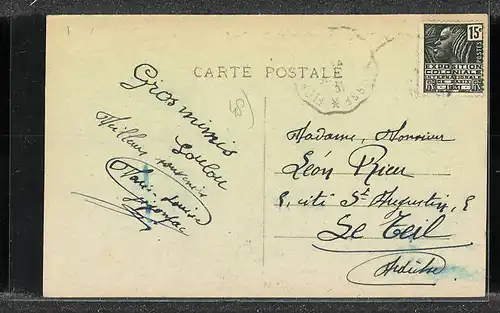 CARTE POSTALE
15c
EXPOSITION
COLONIALE
INTERNATIONALE
DE PARIS
1931
Gros mimis
Loulou
Meilleurs souvenirs
Marie-Louise
Madame, Monsieur
Léon Rieu
cité St Augustin,
Le Teil
Ardèche